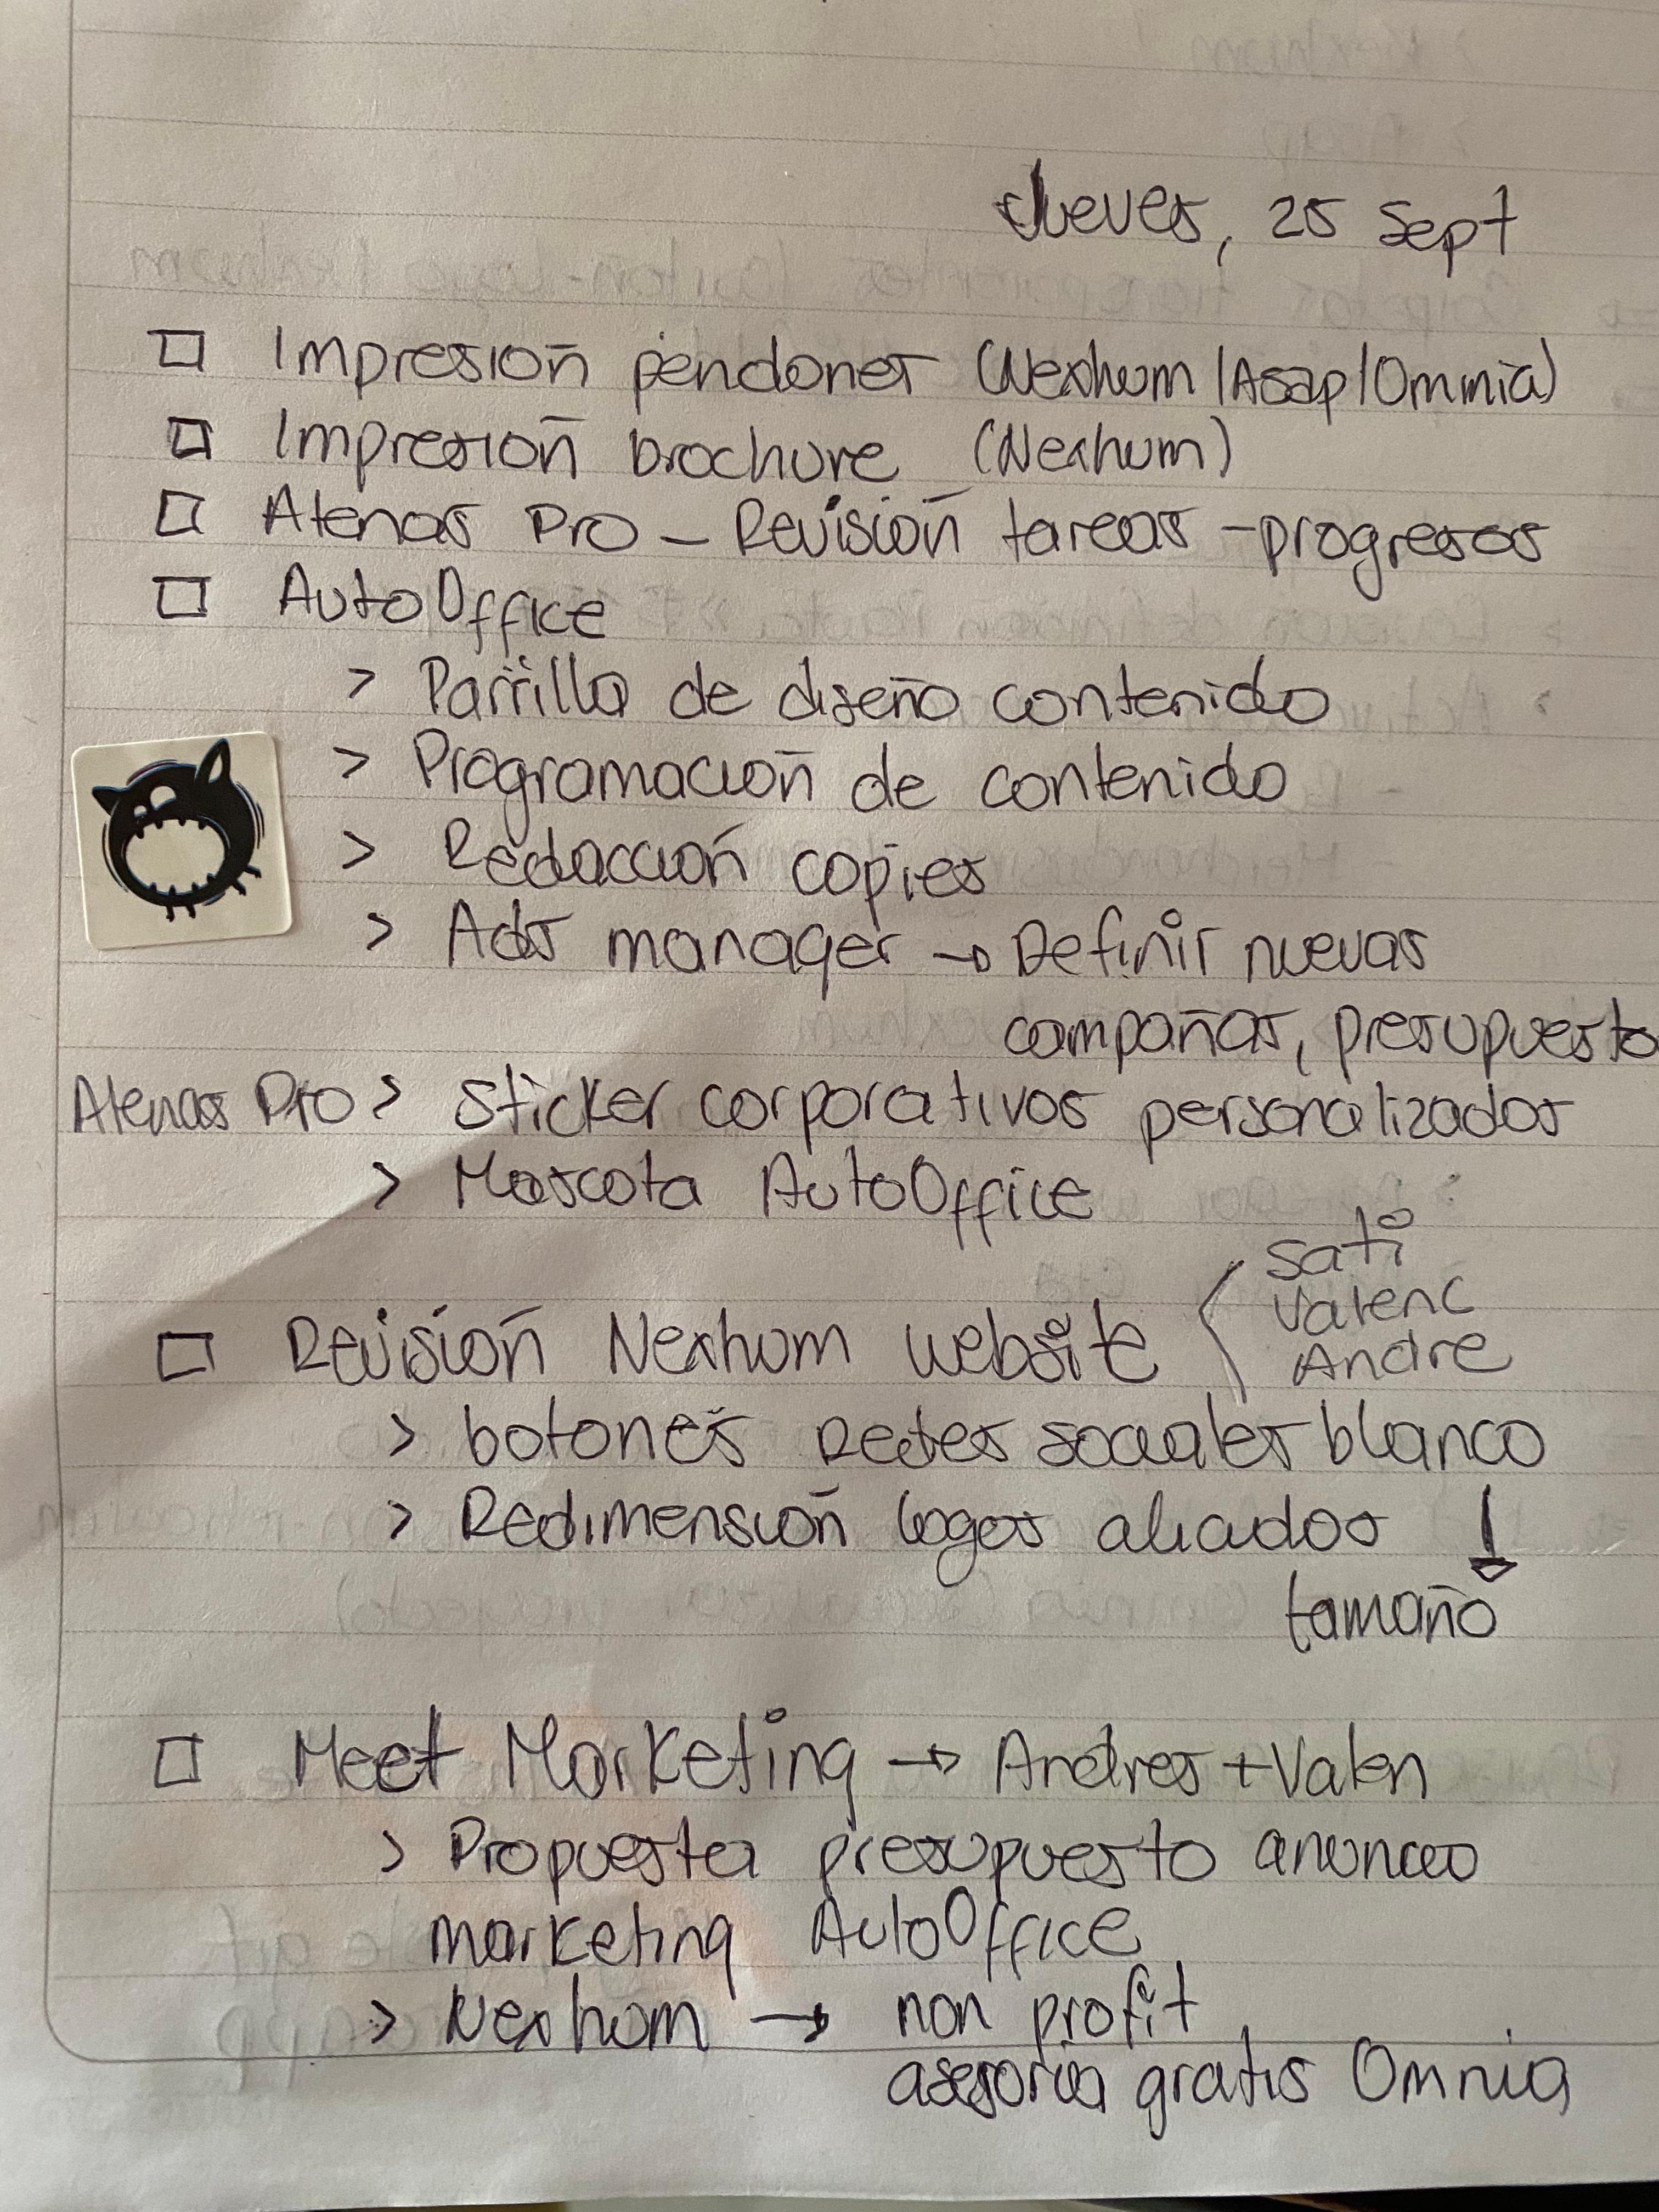 Jueves, 25 Sept
Impresión pendones (Nexhum/Asap/Omnia)
Impresión brochure (Nexhum)
Atenas Pro - Revisión tareas - progresos
AutoOffice
> Parrilla de diseño contenido
> Programación de contenido
> Redacción copies
> Ads manager → Definir nuevas
campañas, presupuesto
Atenas Pro > Sticker corporativos personalizados
> Mascota AutoOffice
Sati
Valenc
Andre
Revisión Nexhum website
> botones Redes sociales blanco
> Redimensión logos aliados ↓
tamaño
Meet Marketing → Andres + Valen
> Propuesta presupuesto anuncio
marketing AutoOffice
> Nexhum → non profit
asesoría gratis Omnia